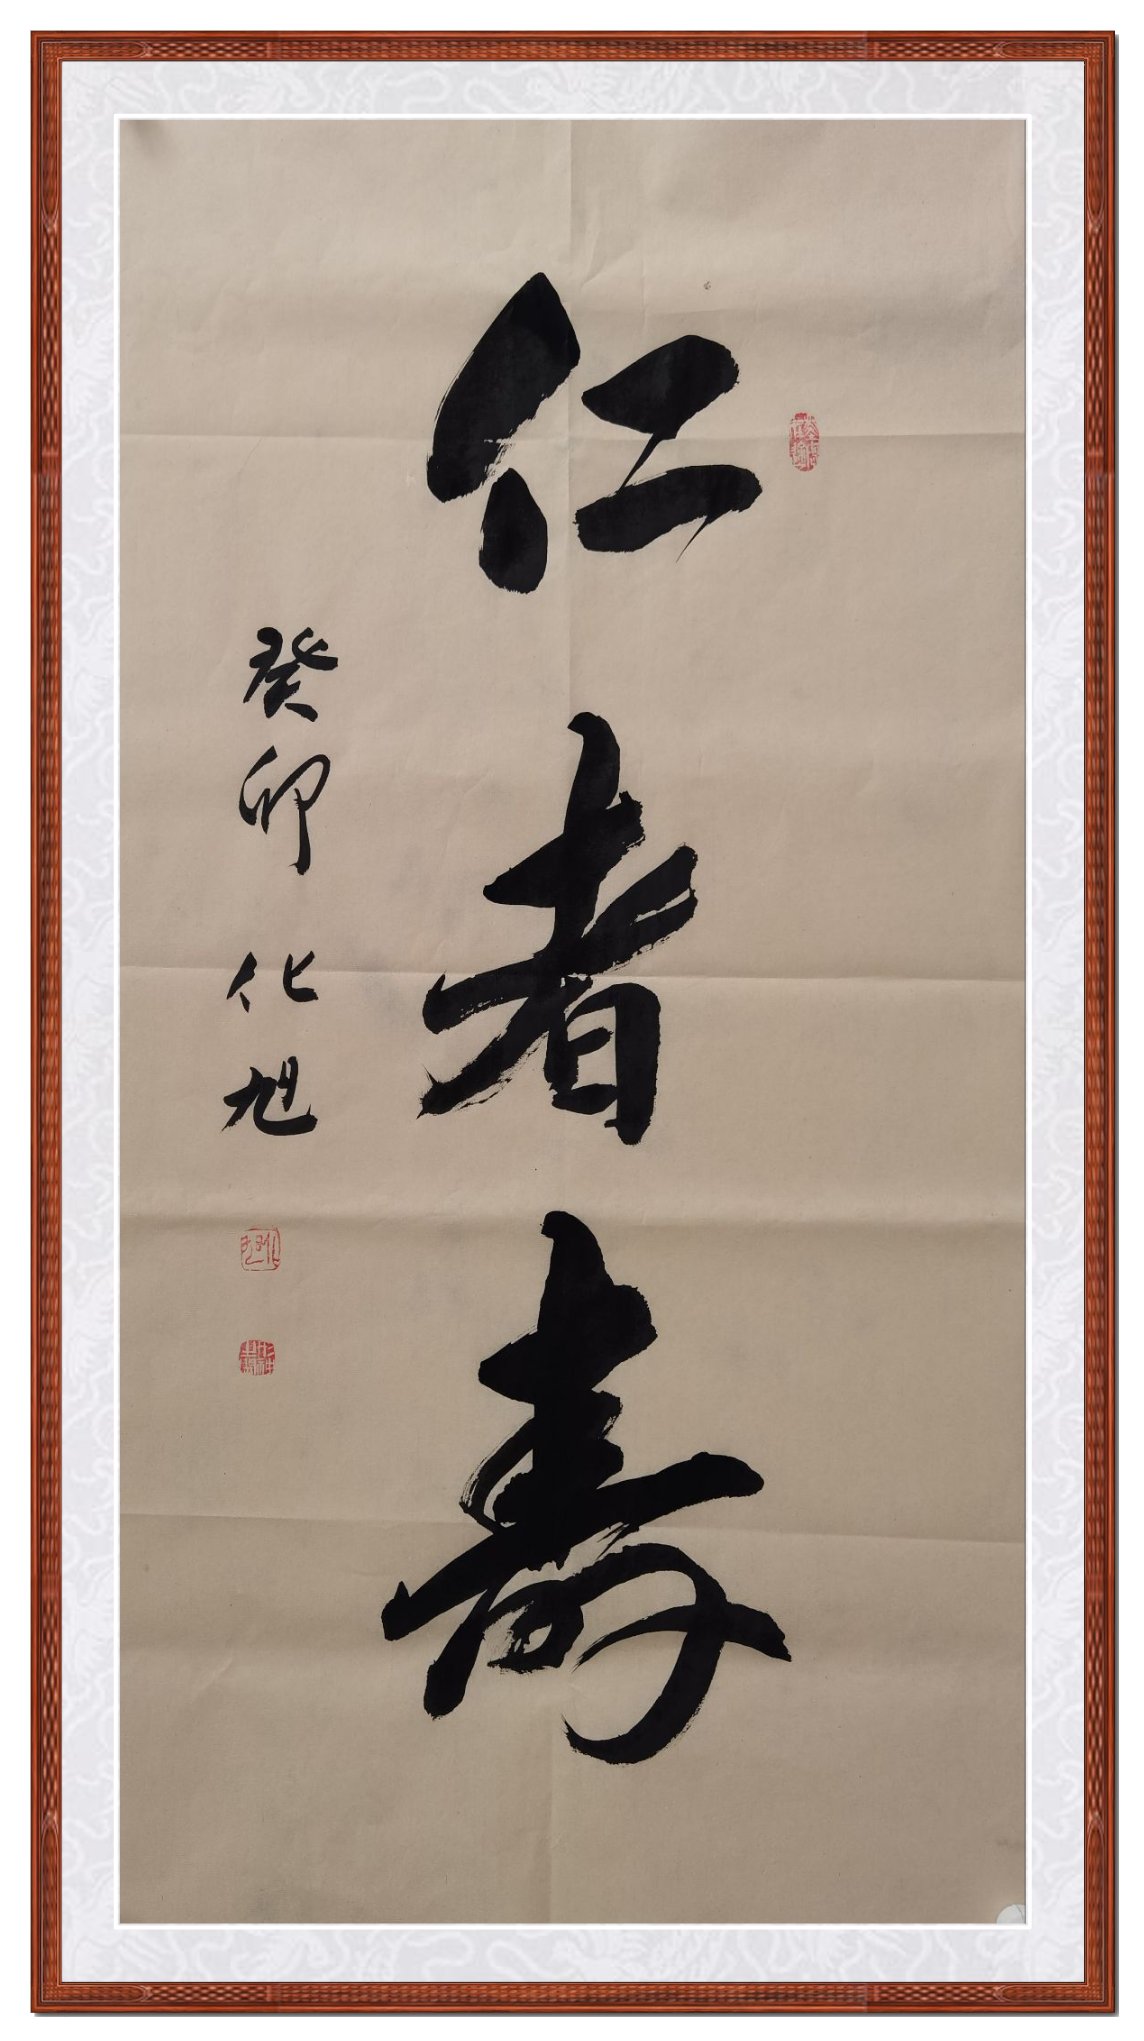 仁者寿
癸卯 化旭